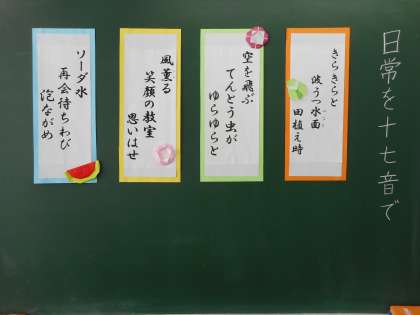 日常を十七音で
きらきらと
波うつ水面
田植え時
空を飛ぶ
てんとう虫が
ゆらゆらと
風薫る
笑顔の教室
思いはせ
ソーダ水
再会待ちわび
泡ながめ